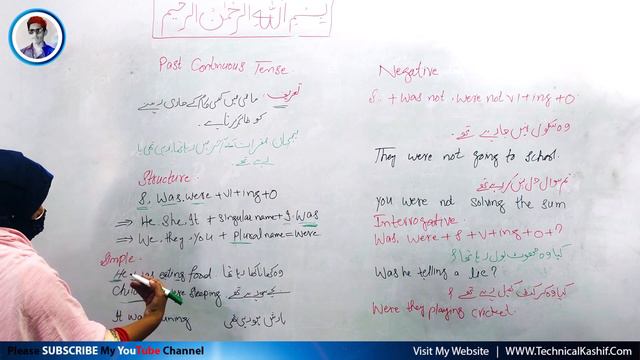 بسم الله الرحمن الرحيم
Past Continuous Tense
تعریف: ماضی میں کسی کام کے جاری رہنے
کو ظاہر کرتا ہے۔
Structure:
S, Was, were + V1 + ing + O
⇒ He She, It + Singular name + I. Was
⇒ We, they, You + Plural name = Were
Simple:
He was eating food وہ کھانا کھا رہا تھا
were sleeping
It was بارش ہو رہی تھی
Negative
S. + Was not, Were not V1 + ing + O
وہ سکول نہیں جا رہے تھے۔
They were not going to school.
تم سوال حل نہیں کر رہے تھے
You were not solving the sum
Interrogative.
Was, Were + S + V + ing + O + ?
کیا وہ جھوٹ بول رہا تھا؟
Was he telling a lie?
کیا وہ کرکٹ کھیل رہے تھے؟
Were they playing cricket.
Please SUBSCRIBE My YouTube Channel
Visit My Website | WWW.TechnicalKashif.Com